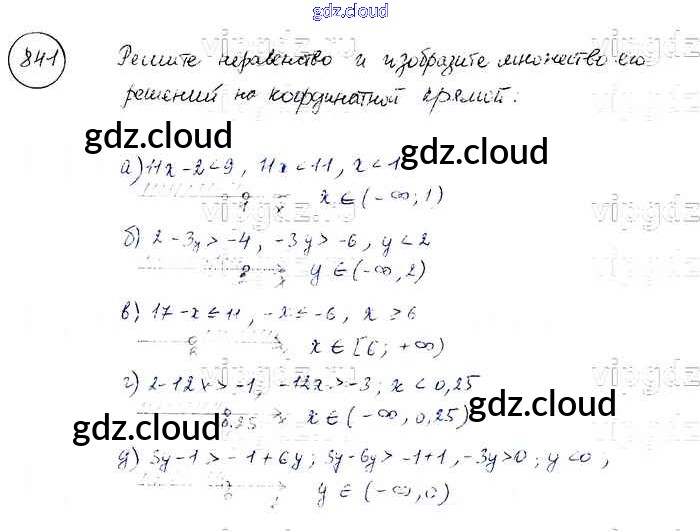 gdz.cloud
841 Решите неравенство и изобразите множество его
решений на координатной прямой.
gdz.cloud
gdz.cloud
а) 11x-2<9, 11x<11, x<1
1 x x ∈ (-∞; 1)
б) 2-3y>-4, -3y>-6, y<2
2 y ∈ (-∞, 2)
в) 17-x≤11, -x≤-6, x≥6
6 x ∈ [6; +∞)
г) 2-12x>-1; -12x>-3; x<0,25
0,25 x ∈ (-∞, 0,25)
gdz.cloud
gdz.cloud
д) 3y-1>-1+6y; 3y-6y>-1+1, -3y>0; y<0,
y ∈ (-∞, 0)